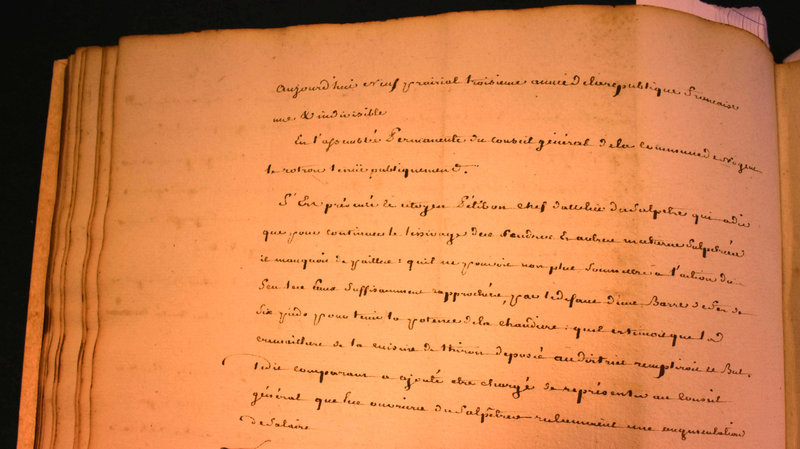 aujourd'hui neuf prairial troisieme année de la republique francaise
une & indivisible
En l'assemblée Permanente du conseil général de la Commune de Nogent
le rotrou tenüe publiquement.
S'Est présenté le citoyen Pélibon chef d'attelier du salpêtre qui a dit
que pour continuer le lessivage des cendres Et autres matieres salpetrées
il manquoit de pailles : qu'il ne pouvoit non plus soumettre a l'action du
feu les Eaux suffisamment rapprochées, par le defaut d'une Barre de fer de
six pieds pour tenir la potence de la chaudiere : quil estimoit que la
cremaillere de la cuisine de thiron deposée au district rempliroit le But.
Ledit comparant a ajouté etre chargé de représenter au Conseil
général que les ouvriers du salpêtre reclament une augmentation
de salaire